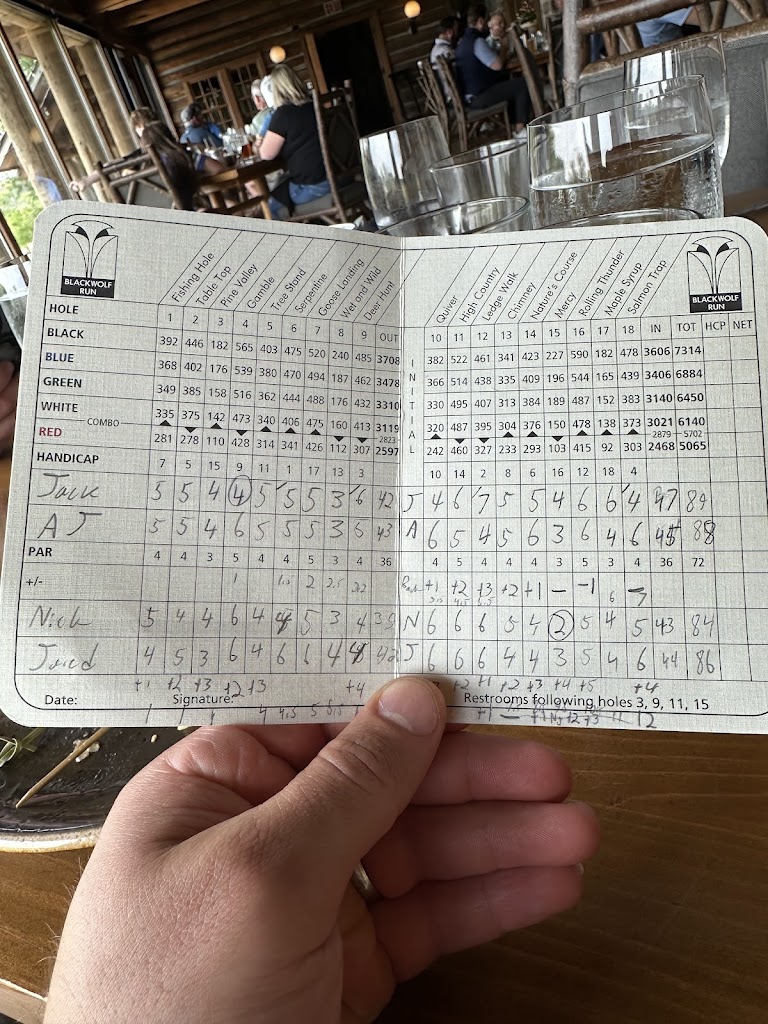 BLACKWOLF RUN
Fishing Hole Table Top Pine Valley Gamble Tree Stand Serpentine Goose Landing Wet and Wild Deer Hunt Quiver High Country Ledge Walk Chimney Nature's Course Mercy Rolling Thunder Maple Syrup Salmon Trap
BLACKWOLF RUN
HOLE 1 2 3 4 5 6 7 8 9 OUT INITIAL 10 11 12 13 14 15 16 17 18 IN TOT HCP NET
BLACK 392 446 182 565 403 475 520 240 485 3708 382 522 461 341 423 227 590 182 478 3606 7314
BLUE 368 402 176 539 380 470 494 187 462 3478 366 514 438 335 409 196 544 165 439 3406 6884
GREEN 349 385 158 516 362 444 488 176 432 3310 330 495 407 313 384 189 487 152 383 3140 6450
WHITE 335 375 142 473 340 406 475 160 413 3119 320 487 395 304 376 150 478 138 373 3021 6140
COMBO 2823 2879 5702
RED 281 278 110 428 314 341 426 112 307 2597 242 460 327 233 293 103 415 92 303 2468 5065
HANDICAP 7 5 15 9 11 1 17 13 3 10 14 2 8 6 16 12 18 4
Jack 5 5 4 4 5 5 5 3 6 42 J 4 6 7 5 5 4 6 6 4 47 89
AJ 5 5 4 6 5 5 5 3 5 43 A 6 5 4 5 6 3 6 4 6 45 88
PAR 4 4 3 5 4 4 5 3 4 36 4 5 4 4 4 3 4 3 4 36 72
+/- 1 1.5 2 2.5 +1 +2 +3 +2 +1 - -1
Nick 5 4 4 6 4 4 5 3 4 39 N 6 6 6 5 4 2 5 4 5 43 84
Jared 4 5 3 6 4 6 6 4 4 42 J 6 6 6 4 4 3 5 4 6 44 86
+1 +2 +3 +2 +3 +4 +2 +1 +2 +3 +4 +5 +4
Date: Signature: Restrooms following holes 3, 9, 11, 15